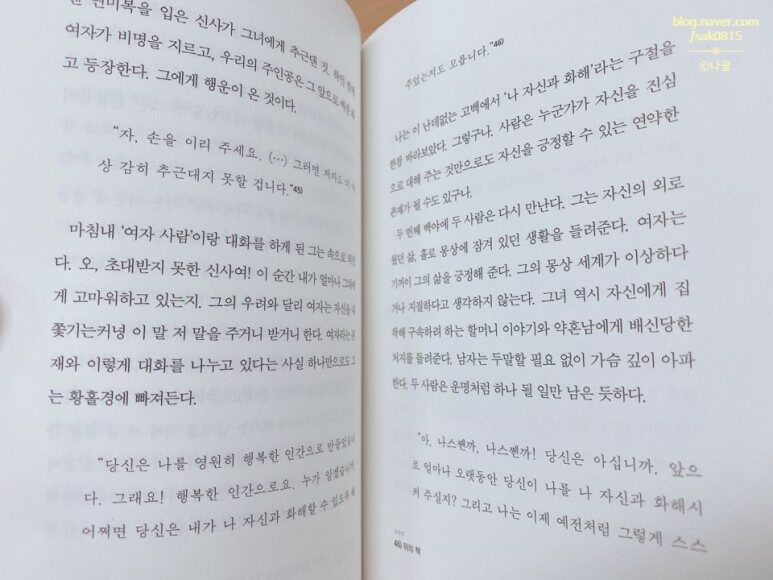 연미복을 입은 신사가 그녀에게 추근댄 것.
여자가 비명을 지르고, 우리의 주인공은 그 앞으로
고 등장한다. 그에게 행운이 온 것이다.
“자, 손을 이리 주세요. (…) 그러면 저자도 더 이
상 감히 추근대지 못할 겁니다.”45)
마침내 ‘여자 사람’이랑 대화를 하게 된 그는 속으로
다. 오, 초대받지 못한 신사여! 이 순간 내가 얼마나 그대에
게 고마워하고 있는지. 그의 우려와 달리 여자는 자신을
쫓기는커녕 이 말 저 말을 주거니 받거니 한다. 여자라는 존
재와 이렇게 대화를 나누고 있다는 사실 하나만으로도 그
는 황홀경에 빠져든다.
“당신은 나를 영원히 행복한 인간으로 만들었습니
다. 그래요! 행복한 인간으로요. 누가 알겠습니까
어쩌면 당신은 내가 나 자신과 화해할 수 있도록
주었는지도 모릅니다.”46)
나는 이 난데없는 고백에서 ‘나 자신과 화해’라는 구절을
한참 바라보았다. 그렇구나. 사람은 누군가가 자신을 진심
으로 대해 주는 것만으로도 자신을 긍정할 수 있는 연약한
존재가 될 수도 있구나.
두 번째 백야에 두 사람은 다시 만난다. 그는 자신의 외로
웠던 삶, 홀로 몽상에 잠겨 있던 생활을 들려준다. 여자는
기꺼이 그의 삶을 긍정해 준다. 그의 몽상 세계가 이상하다
거나 지질하다고 생각하지 않는다. 그녀 역시 자신에게 집
착해 구속하려 하는 할머니 이야기와 약혼남에게 배신당한
처지를 들려준다. 남자는 두말할 필요 없이 가슴 깊이 아파
한다. 두 사람은 운명처럼 하나 될 일만 남은 듯하다.
“아, 나스쩬까, 나스쩬까! 당신은 아십니까, 앞으
로 얼마나 오랫동안 당신이 나를 나 자신과 화해시
켜 주실지? 그리고 나는 이제 예전처럼 그렇게 스스
46) 위의 책
blog.naver.com
/sak0815
ⓒ나른